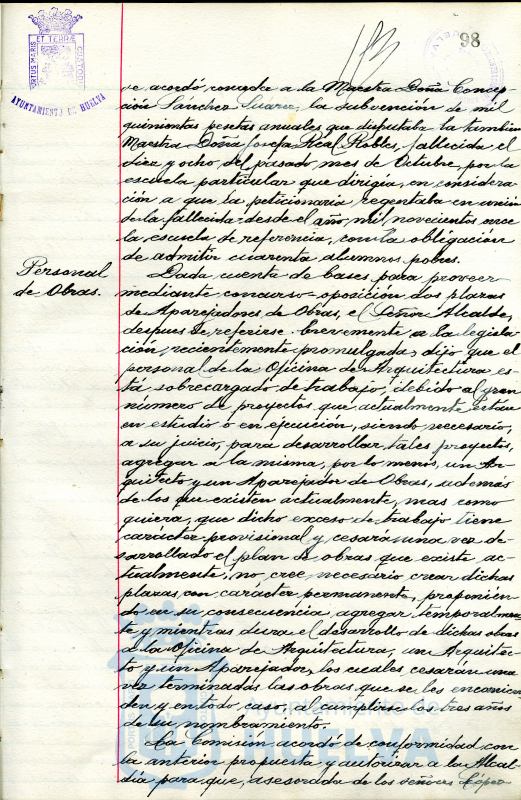 PORTUS MARIS
ET TERRAE
CUSTODIA
AYUNTAMIENTO DE HUELVA
98
se acordó, conceder a la Maestra Doña Concep-
ción Sánchez Suarez, la subvención de mil
quinientas pesetas anuales que disfrutaba la también
Maestra Doña Josefa Real Robles, fallecida el
diez y ocho del pasado mes de Octubre, por la
escuela particular que dirigía, en considera-
ción a que la peticionaria regentaba en unión
de la fallecida desde el año mil novecientos once
la escuela de referencia, con la obligación
de admitir cuarenta alumnos pobres.
Personal
de Obras.
Dada cuenta de bases para proveer
mediante concurso-oposición dos plazas
de Aparejadores de Obras, el Señor Alcalde,
despues de referirse brevemente a la legisla-
ción, recientemente promulgada, dijo que el
personal de la Oficina de Arquitectura es-
tá sobrecargado de trabajo, debido al gran
número de proyectos que actualmente están
en estudio o en ejecución, siendo necesario,
a su juicio, para desarrollar tales proyectos,
agregar a la misma, por lo menos, un Ar-
quitecto y un Aparejador de Obras, además
de los que existen actualmente, mas como
quiera, que dicho exceso de trabajo tiene
carácter provisional y cesará una vez de-
sarrollado el plan de obras que existe ac-
tualmente, no cree necesario crear dichas
plazas con carácter permanente, proponien-
do en su consecuencia, agregar temporalmen-
te y mientras dura el desarrollo de dichas obras
a la Oficina de Arquitectura, un Arquitec-
to y un Aparejador, los cuales cesarán una
vez terminadas las obras, que se les encomien-
den y en todo caso, al cumplirse los tres años
de su nombramiento.
La Comisión acordó de conformidad con
la anterior propuesta y autorizar a la Alcal-
día para que, asesorada de los señores López
Ayuntamiento de
HUELVA